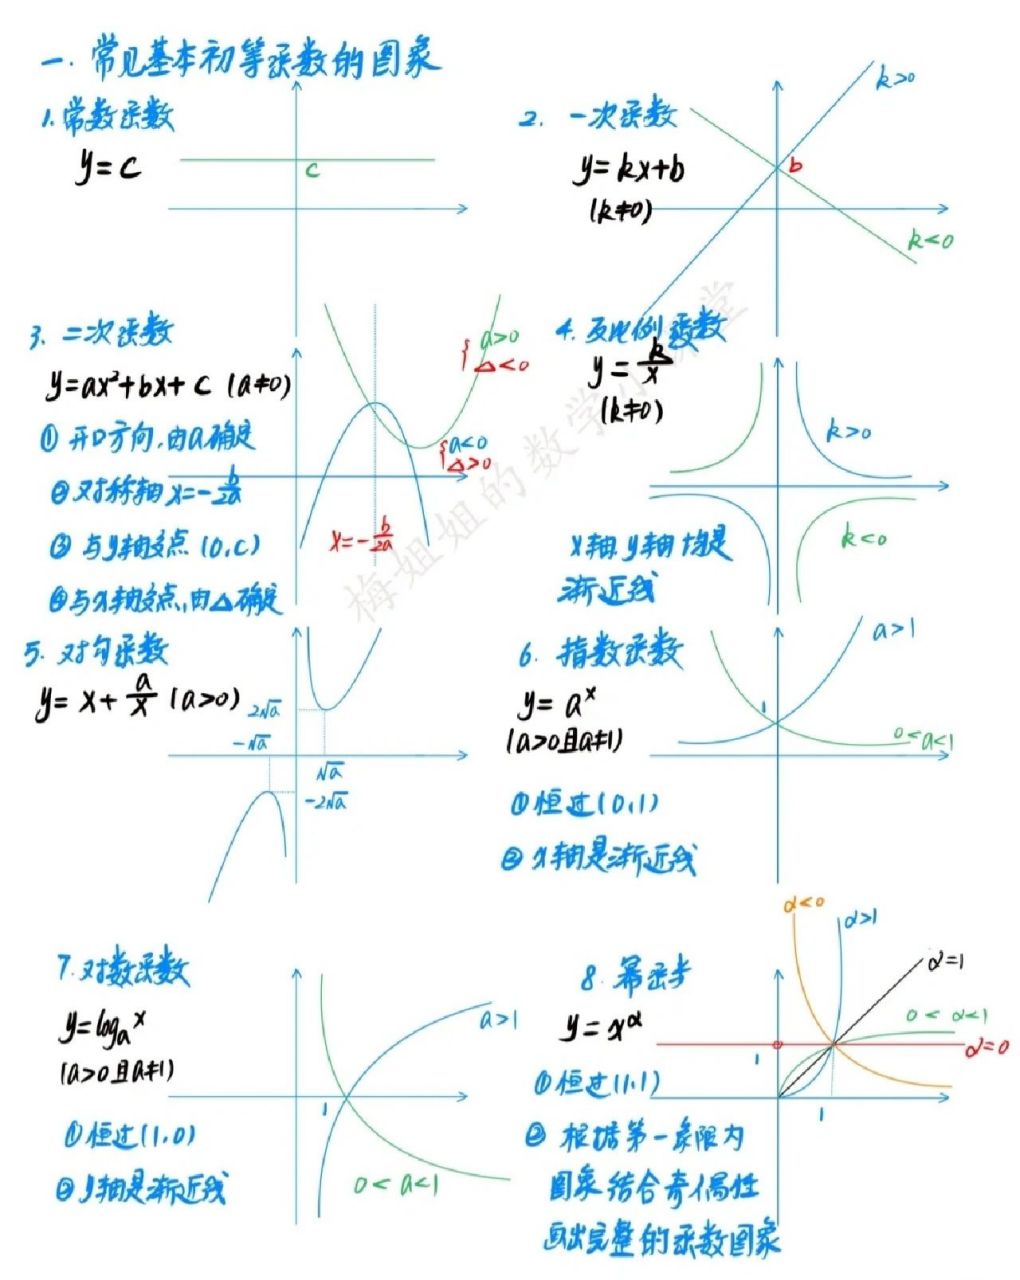 一. 常见基本初等函数的图象
1. 常数函数
y=c
c
2. 一次函数
y=kx+b
(k≠0)
k>0
b
k<0
3. 二次函数
y=ax²+bx+c (a≠0)
① 开口方向,由a确定
② 对称轴 x=-b/2a
③ 与y轴交点 (0,c)
④ 与x轴交点,由△确定
{a>0
△<0
{a<0
△>0
x=-b/2a
4. 反比例函数
y=k/x
(k≠0)
k>0
k<0
x轴 y轴均是
渐近线
5. 对勾函数
y=x+a/x (a>0)
2√a
-√a
√a
-2√a
6. 指数函数
y=aˣ
(a>0且a≠1)
a>1
1
0<a<1
①恒过(0,1)
② x轴是渐近线
7. 对数函数
y=logₐx
(a>0且a≠1)
①恒过(1,0)
② y轴是渐近线
a>1
1
0<a<1
8. 幂函数
y=x^α
①恒过(1,1)
② 根据第一象限内
图象结合奇偶性
画出完整的函数图象
α<0
α>1
α=1
0<α<1
α=0
1
1
梅姐姐的数学小课堂